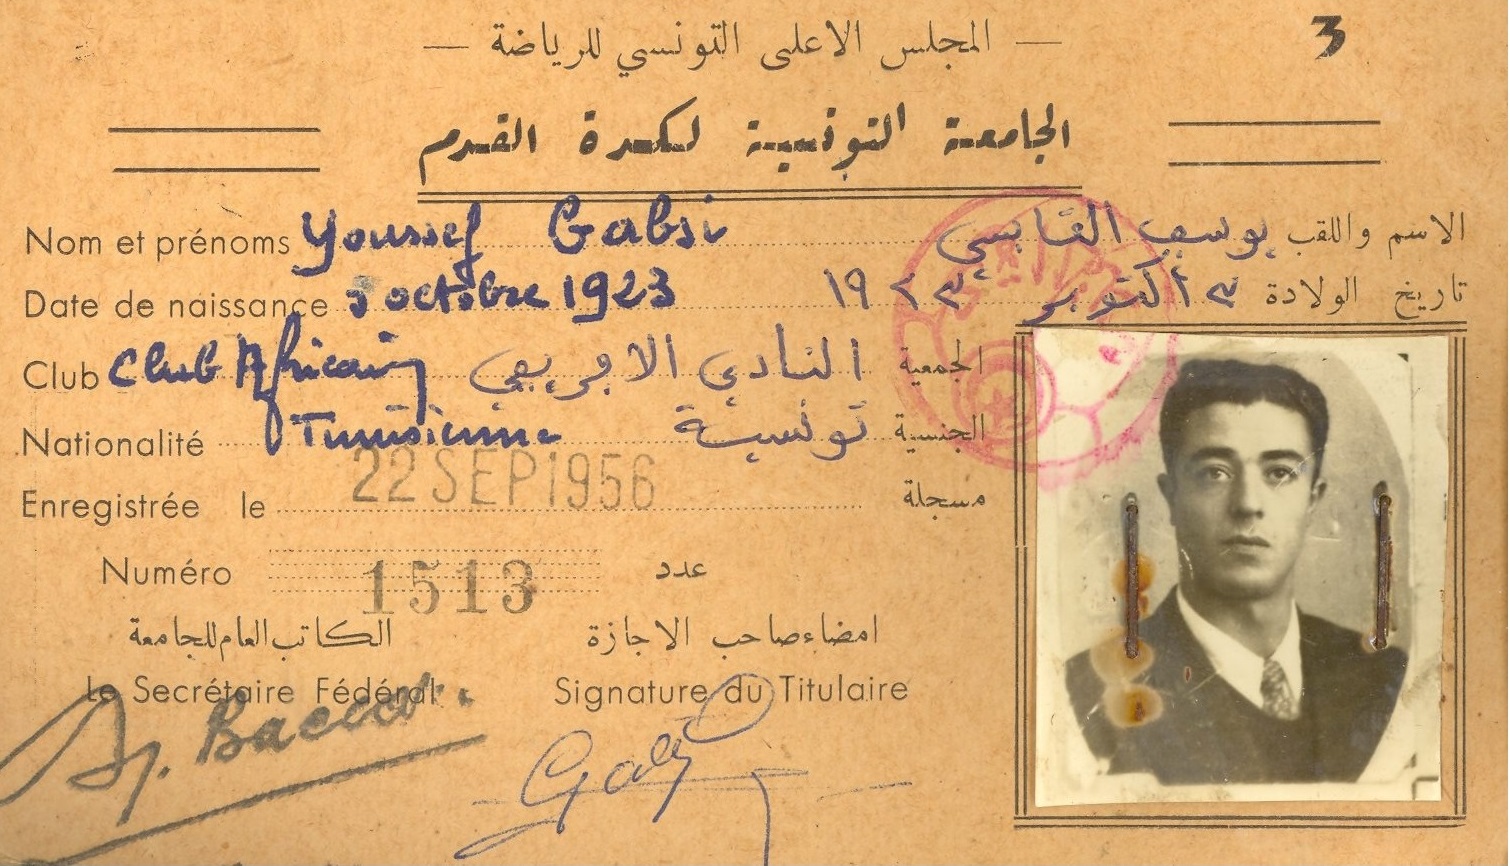 3
— المجلس الاعلى التونسي للرياضة —
الجامعة التونسية لكرة القدم
Nom et prénoms Youssef Gabsi يوسف القابسي الاسم واللقب
Date de naissance 3 octobre 1923 ٣ اكتوبر ١٩٢٣ تاريخ الولادة
Club Club Africain النادي الافريقي الجمعية
Nationalité Tunisienne تونسية الجنسية
Enregistrée le 22 SEP 1956 مسجلة
Numéro 1513 عدد
الكاتب العام للجامعة امضاء صاحب الاجازة
Le Secrétaire Fédéral Signature du Titulaire